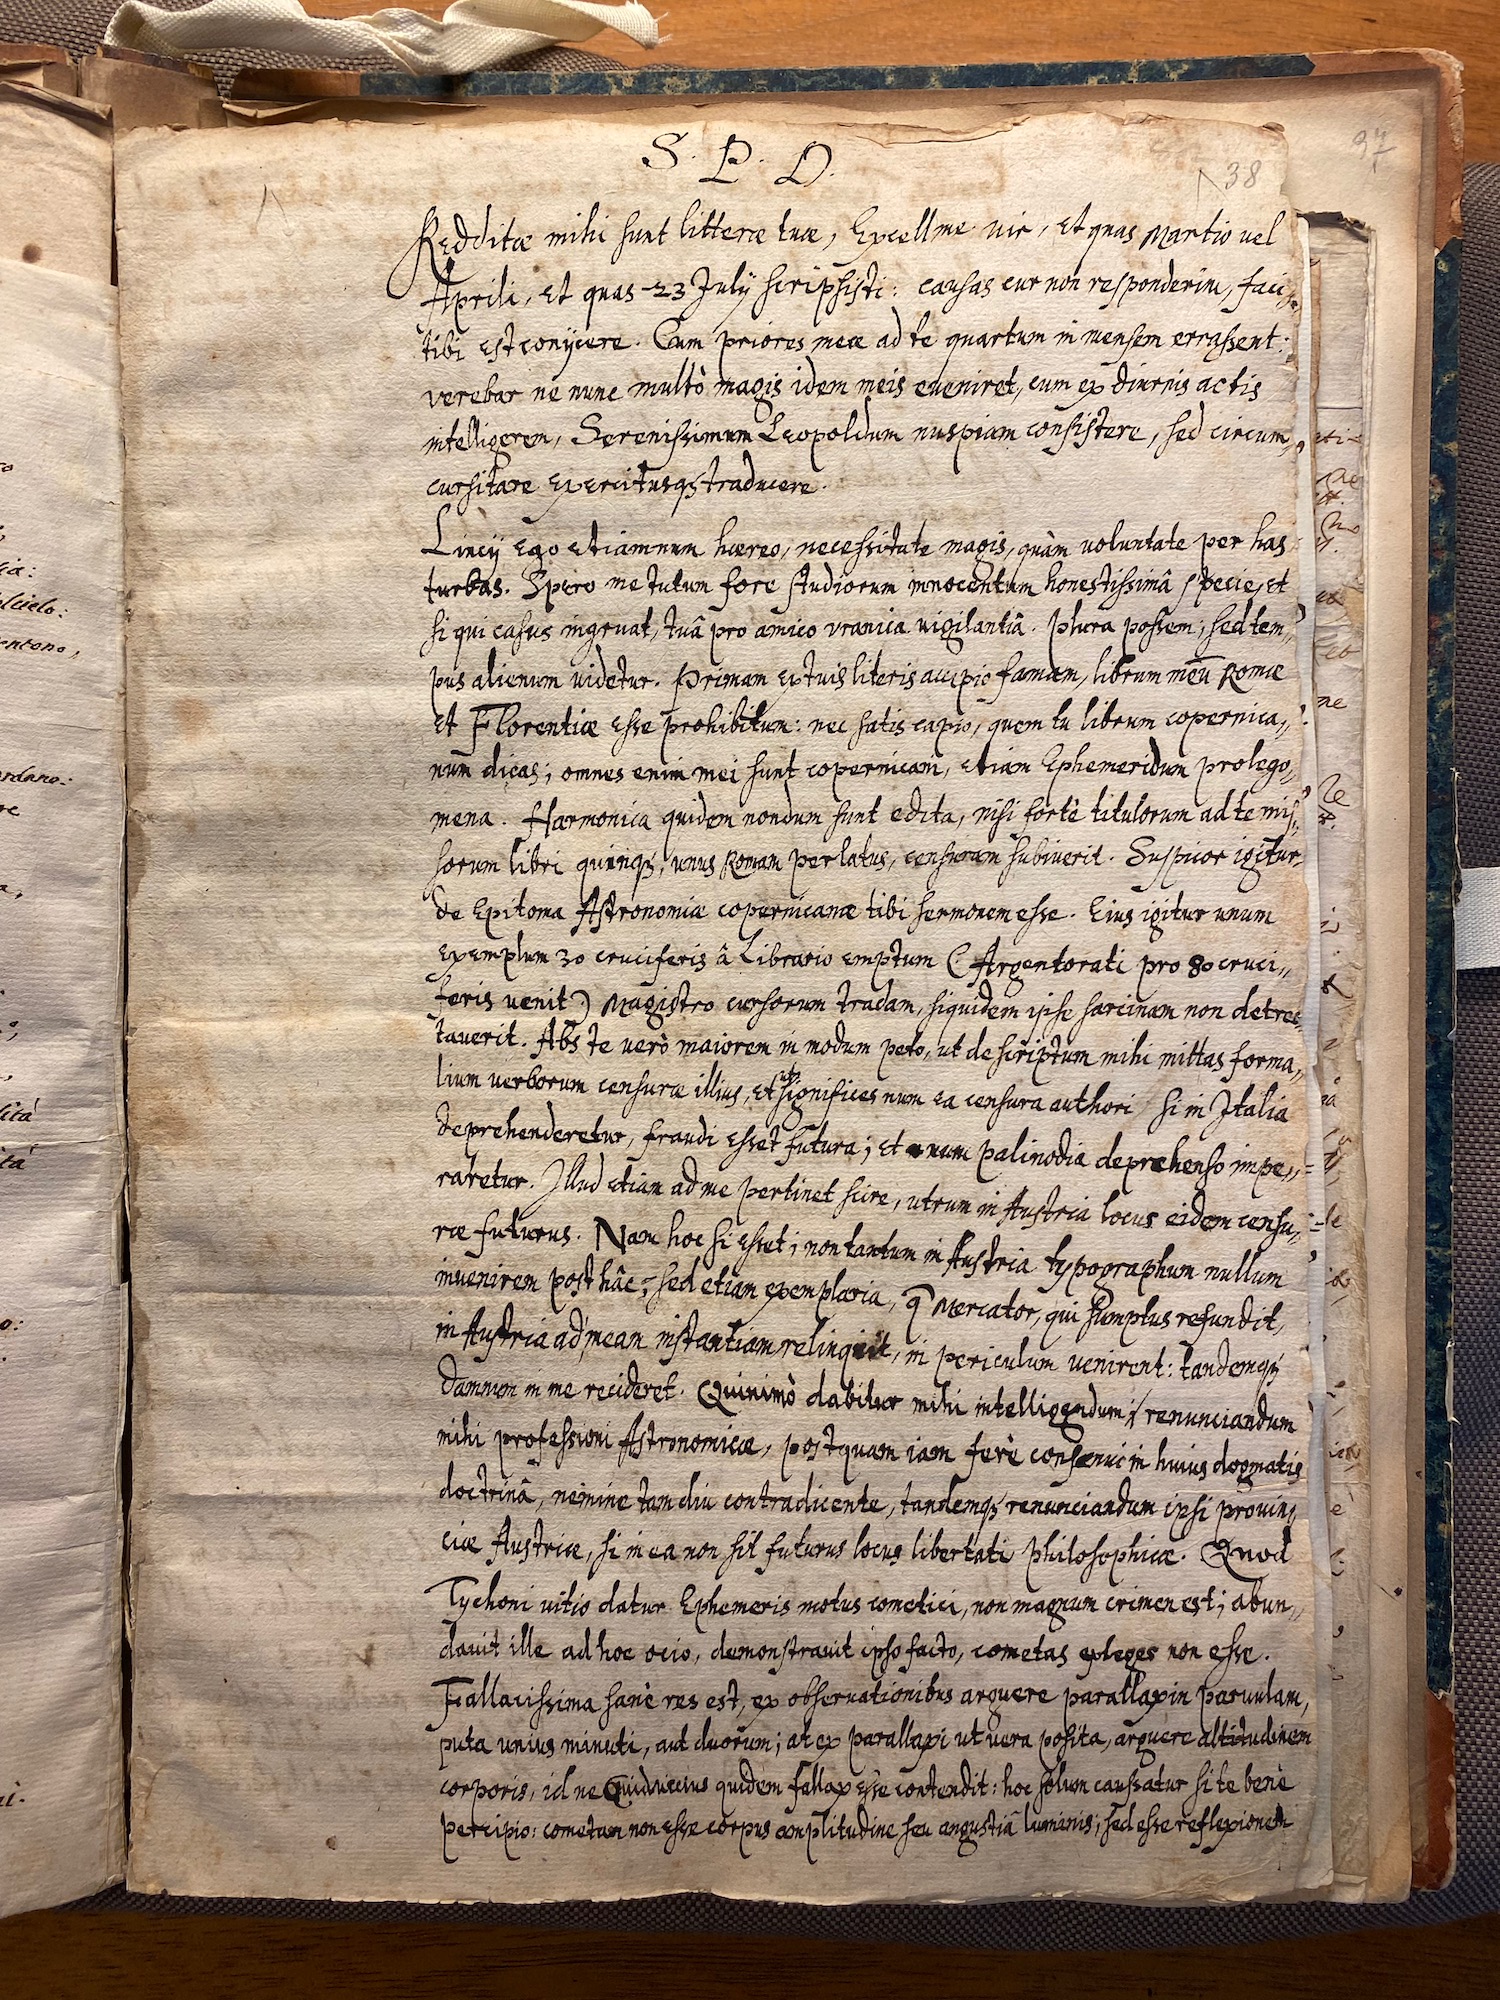 S. P. D.
38
Redditæ mihi sunt litteræ tuæ, Excellme vir, et quas Martio vel
Aprili, et quas 23 Julÿ scripsisti: causas cur non responderim, faci„
tibi est conÿcere. Cum priores meæ ad te quartum in mensem errassent:
verebar ne nunc multò magis idem meis eveniret, cum ex diurnis actis
intelligerem, Serenissimum Leopoldum nuspiam consistere, sed circum„
cursitare exercitusqꝫ traducere.
Lincÿ ego etiamnum hæreo, necessitate magis, quàm voluntate per has
turbas. Spero me tutum fore studiorum innocentum honestissimâ specie, et
si qui casus ingruat, tuâ pro amico vranica vigilantiâ. Plura possem, sed tem„
pus alienum videtur. Primam ex tuis literis accipio famam, librum meũ Romæ
et Florentiæ esse prohibitum: nec satis capio, quem tu librum copernica„
num dicas; omnes enim mei sunt copernicani, etiam Ephemeridum prolego„
mena. Harmonica quidem nondum sunt edita, nisi fortè titulorum ad te mis„
sorum libri quinqꝫ, unus Romam perlatus, censuram subiverit. Suspicor igitur
de Epitoma Astronomiæ copernicanæ tibi sermonem esse. Eius igitur unum
exemplum 30 cruciferis â Librario emptum (Argentorati pro 80 cruci„
feris venit) Magistro cursorum tradam, siquidem ipse sarcinam non detrec„
taverit. Abs te verò maiorem in modum peto, ut descriptum mihi mittas forma„
lium verborum censuræ illius, et utꝫ significes num ea censura authori si in Italia
deprehenderetur, fraudi esset futura; et num palinodia deprehenso impe„
raretur. Illud etiam ad me pertinet scire, utrum in Austria locus eidem censu„
ræ futurus. Nam hoc si esset; non tantum in Austria typographum nullum
invenirem post hâc; sed etiam exemplaria, q̃ Mercator, qui sumptus refundit,
in Austria ad meam instantiam relinquit, in periculum venirent: tandemqꝫ
damnum in me recideret. Quinimò dabitur mihi intelligendum; renunciandum
mihi professioni Astronomicæ, postquam iam ferè consenui in huius dogmatis
doctrinâ, nemine tam diu contradicente, tandemqꝫ renunciandum ipsi provin„
ciæ Austriæ, si in ea non sit futurus locus libertati philosophicæ. Quod
Tychoni vitio datur Ephemeris motus cometici, non magnum crimen est; abun„
davit ille ad hoc ocio, demonstravit ipso facto, cometas exleges non esse.
Fallacissima sanè res est, ex observationibus arguere parallaxin parvulam,
puta unius minuti, aut duorum; at ex parallaxi ut vera posita, arguere altitudinem
corporis, id ne quidem fallax esse contendit: hoc solum caussatur si te benè
percipio: cometam non esse corpus amplitudine seu angustiâ luminis; sed esse reflexionem